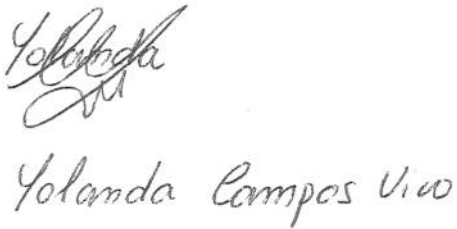 Yolanda
Yolanda Campos Vivo